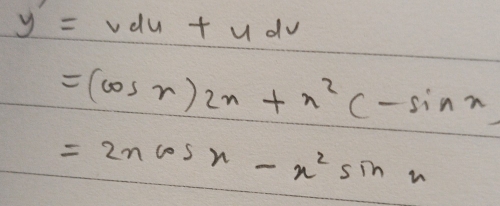 y' = vdu + u dv
= (cos x) 2x + x² (- sin x)
= 2x cos x - x² sin x